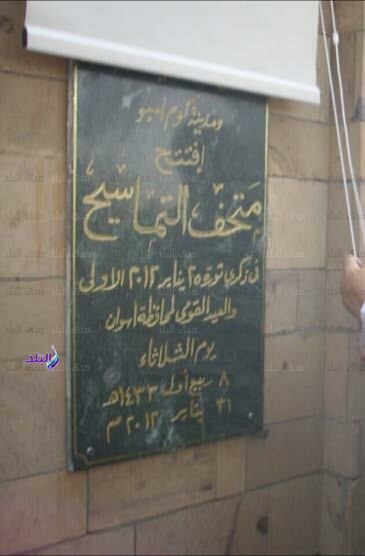 ومدينة كوم امبو
إفتتح
متحف التماسيح
فى ذكرى ثورة ٢٥ يناير ٢٠١٢ الاولى
والعيد القومى لمحافظة اسوان
يوم الثلاثاء
٨ ربيع أول ١٤٣٣هـ
٣١ يناير ٢٠١٢ م
البلد